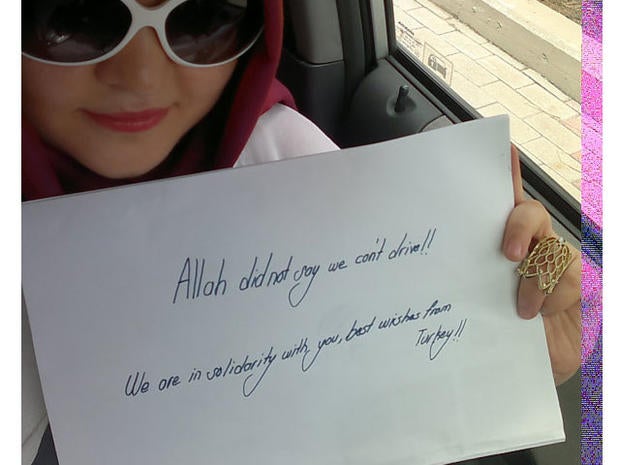 Allah did not say we can't drive!!
We are in solidarity with you, best wishes from
Turkey!!